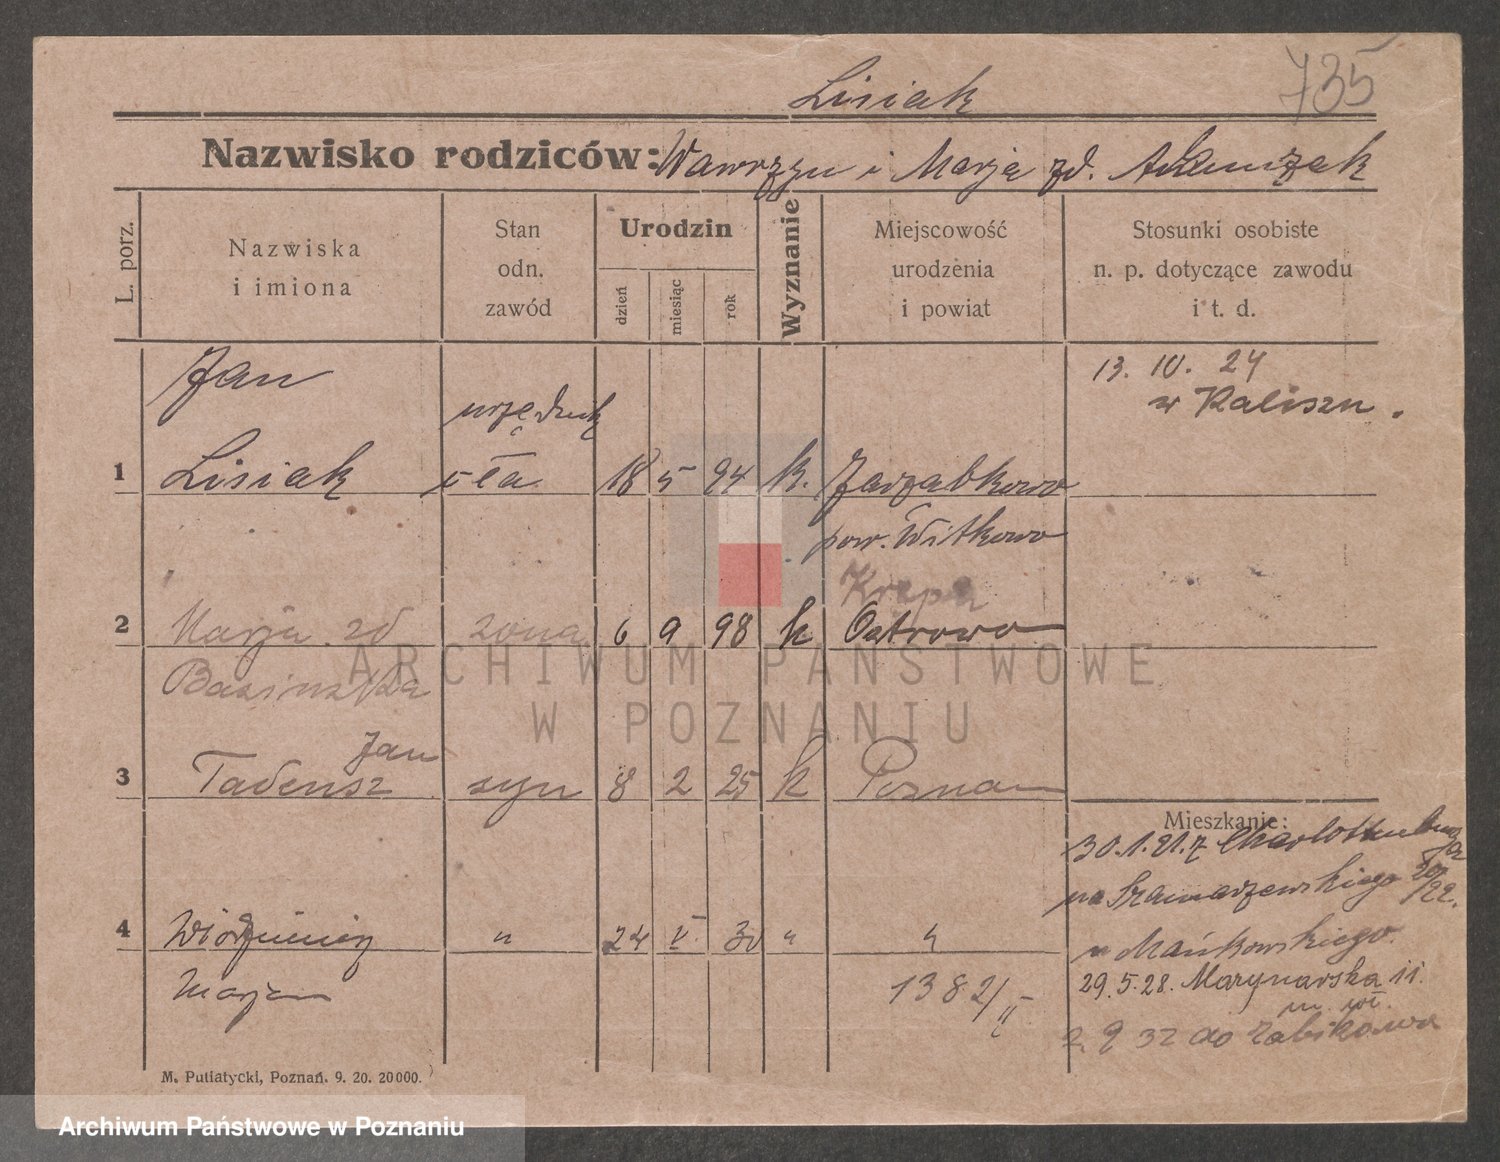 Lisiak
735
Nazwisko rodziców: Wawrzyn i Marja zd. Adamczak
L. porz.
Nazwiska
i imiona
Stan
odn.
zawód
Urodzin
dzień
miesiąc
rok
Wyznanie
Miejscowość
urodzenia
i powiat
Stosunki osobiste
n. p. dotyczące zawodu
i t. d.
13. 10. 24
w Kaliszu.
Jan
urzędnik
1 Lisiak 18 5 94 k. Jarząbkowo
pow. Witkowo
Krępa
2 Marja zd żona 6 9 98 k Ostrowo
Basinska
Jan
3 Tadeusz syn 8 2 25 k Poznan
Mieszkanie:
30.1.21. z Charlottenburga
na Szamarzewskiego 20/22.
4 Włodzimierz " 24 V. 30 " "
Marjan
u Mańkowskiego.
29.5.28. Marynarska 11.
m. wł.
1382/II
2 9 32 do Żabikowa
M. Putiatycki, Poznań. 9. 20. 20000.
ARCHIWUM PAŃSTWOWE
W POZNANIU
Archiwum Państwowe w Poznaniu